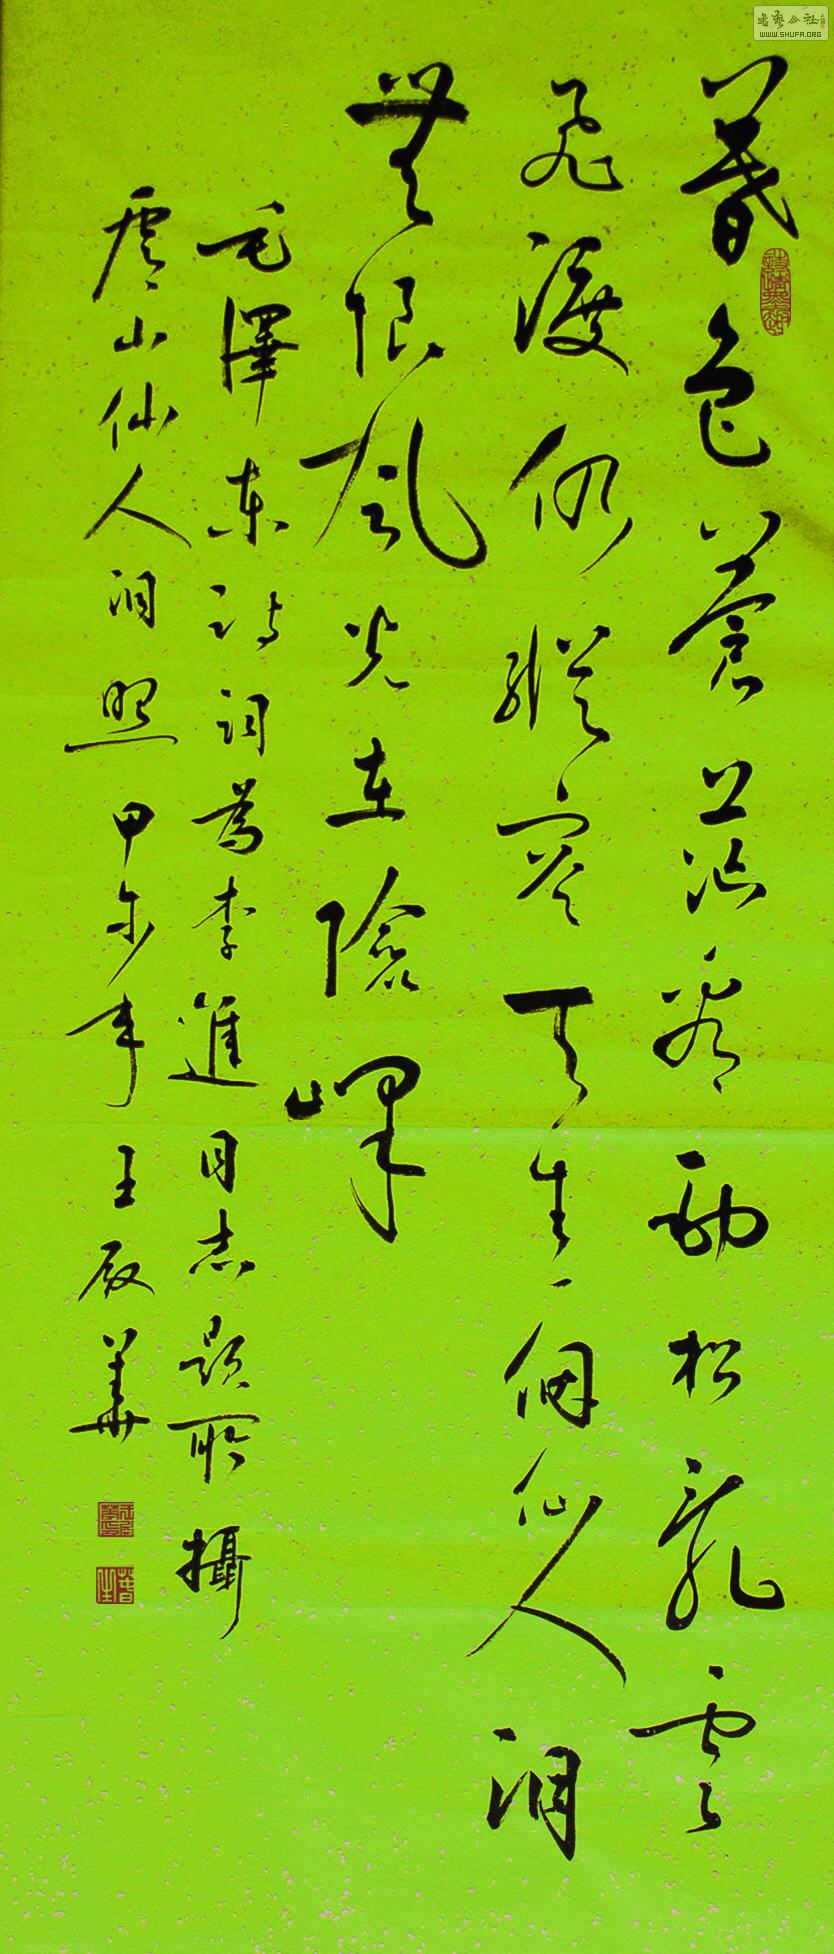 書藝公社
WWW.SHUFA.ORG
暮色蒼茫看劲松乱云
飛渡仍縱容天生一個仙人洞
無限風光在險峰
毛澤東诗词為李進同志題所攝
庐山仙人洞照甲午年王華